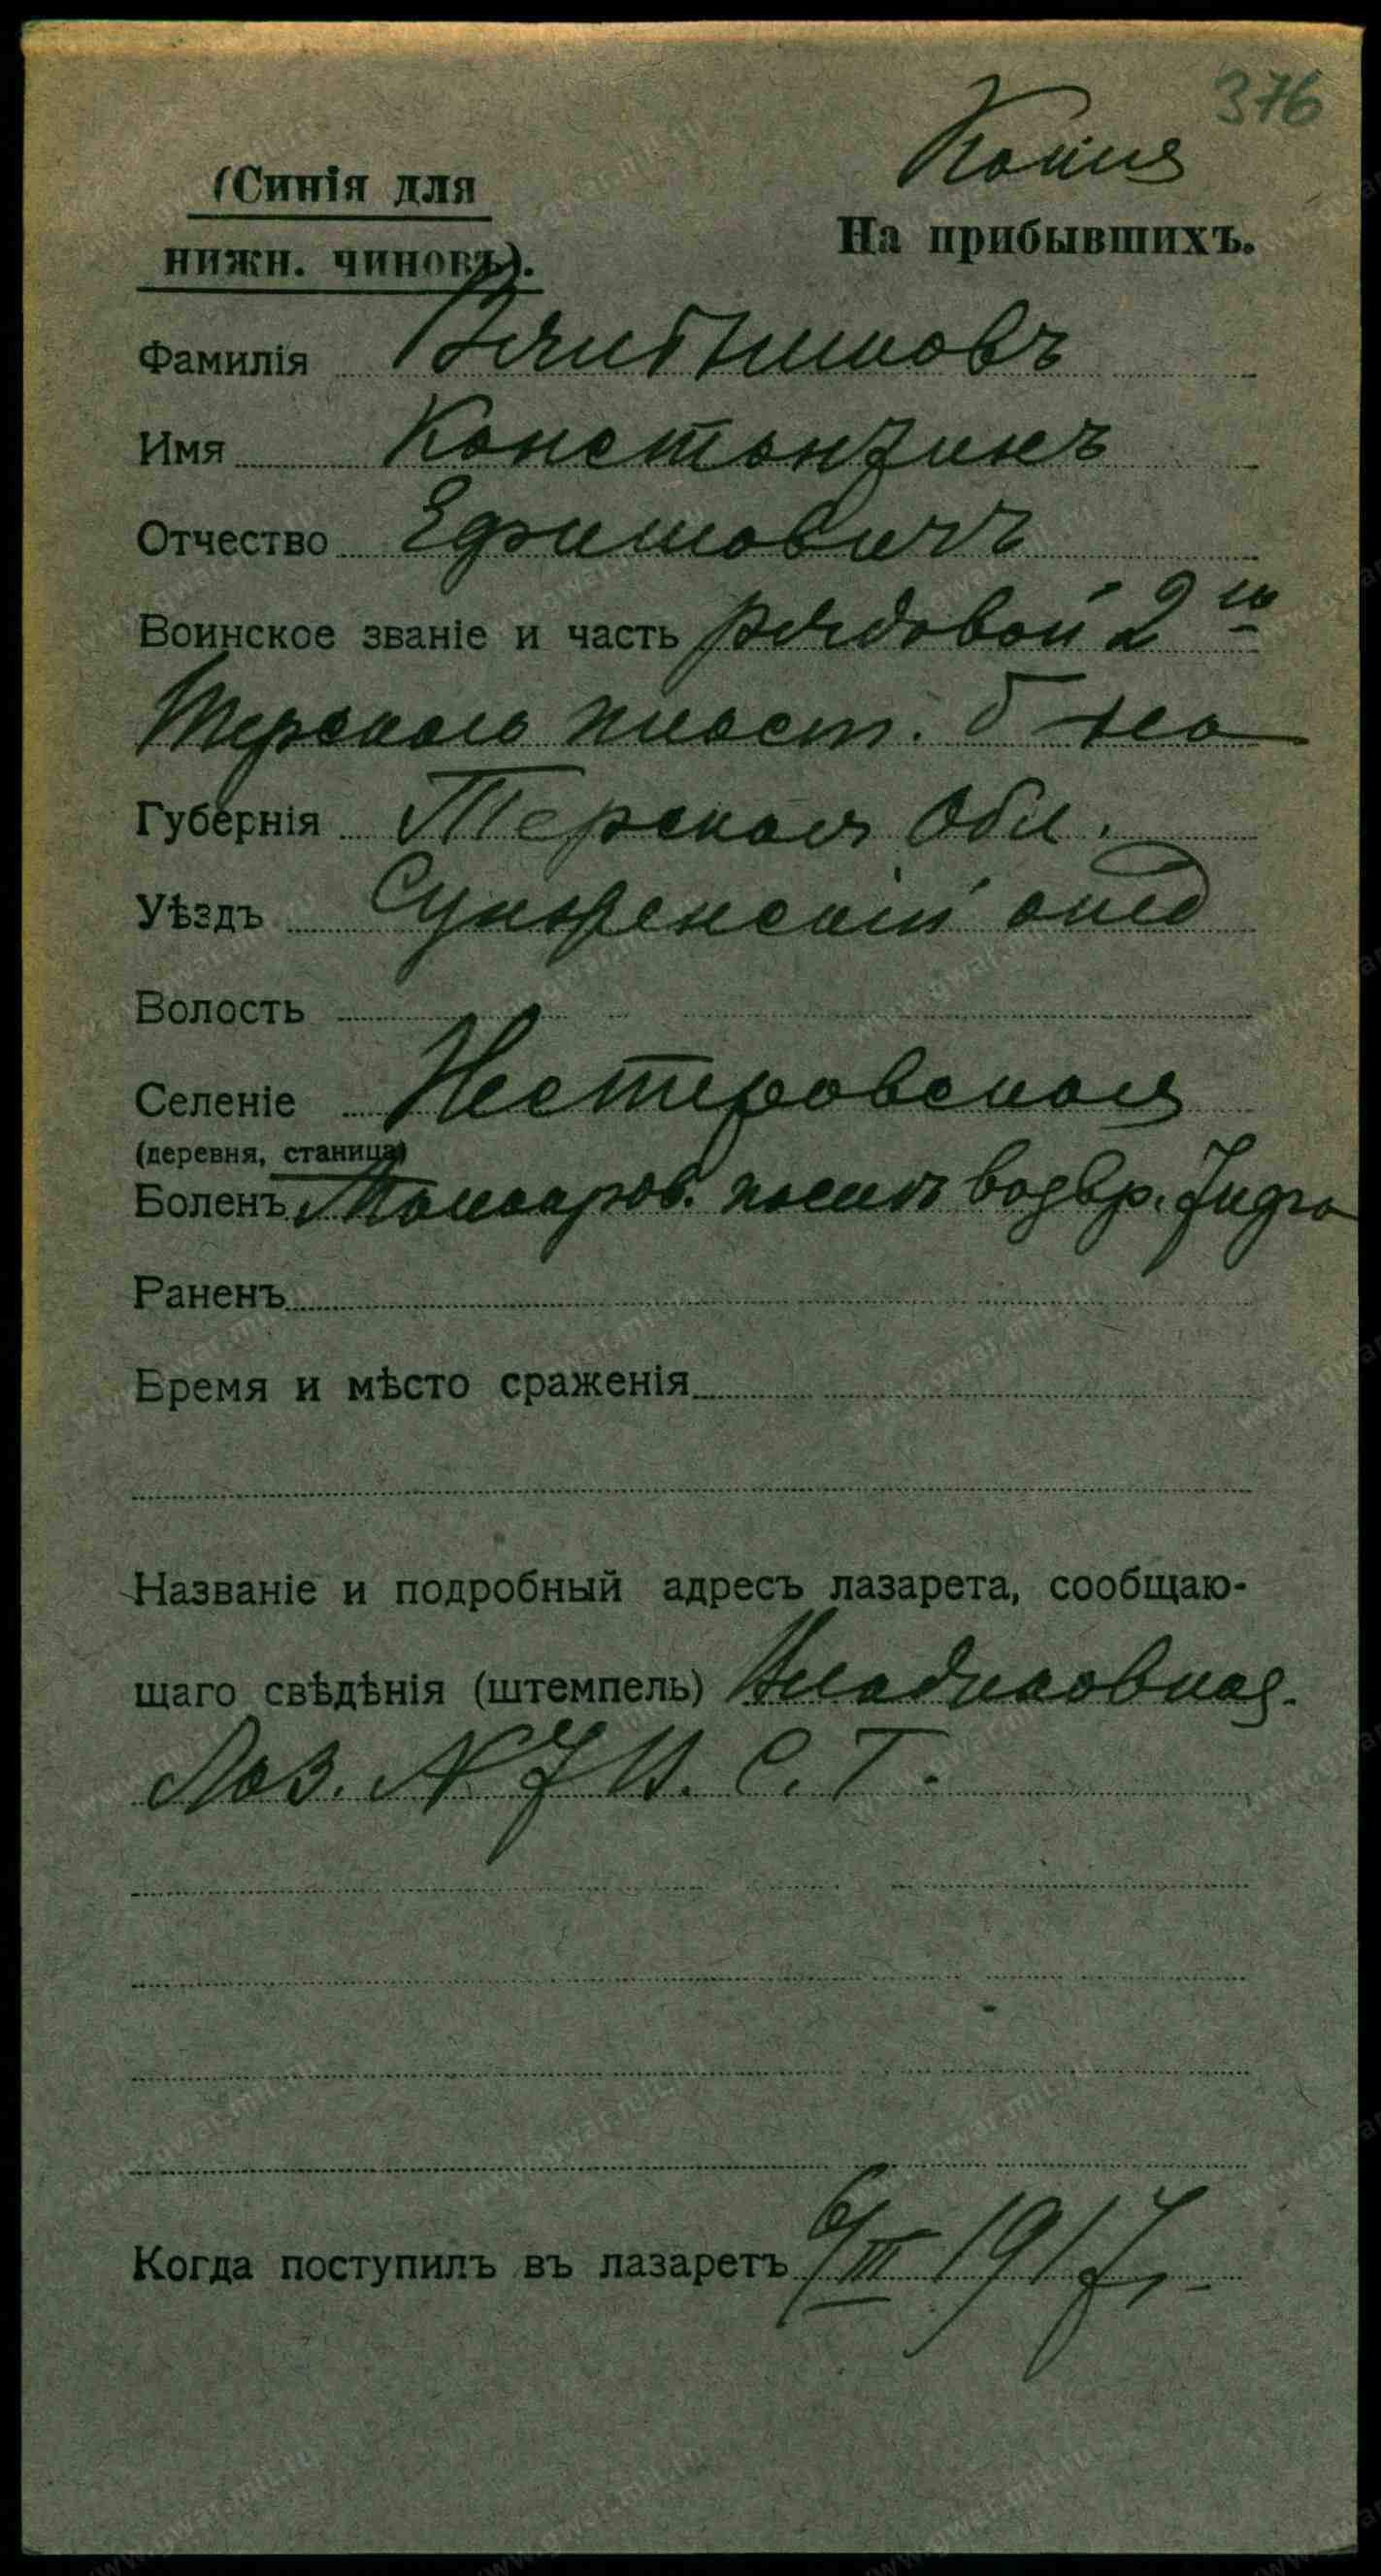 376
Копия
(Синія для
нижн. чиновъ).
На прибывшихъ.
Фамилія
Имя Константинъ
Отчество Ефимовичъ
Воинское званіе и часть рядовой 2го
Терскаго пласт. б-на
Губернія Терская Обл.
Уѣздъ Сунженскій отд
Волость
Селеніе Нестеровская
(деревня, станица)
Боленъ
Раненъ
Время и мѣсто сраженія
Названіе и подробный адресъ лазарета, сообщаю-
щаго свѣдѣнія (штемпель) Владикавказ.
Лаз. № 7 В. С. Г.
Когда поступилъ въ лазаретъ 6/III 1917 г.